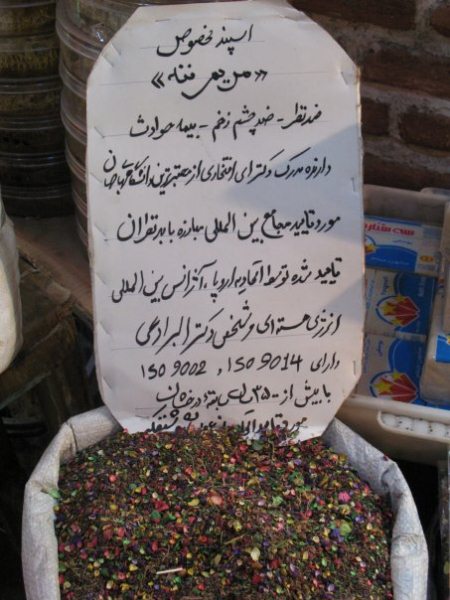 اسپند مخصوص
«مریم ننه»
ضد نظر - ضد چشم زخم - بیمه حوادث
دارنده مدرک دکترای افتخاری از معتبرترین دانشگاههای جهان
مورد تایید مجامع بین المللی مبارزه با بد نظران
تایید شده توسط اتحادیه اروپا، آژانس بین المللی
انرژی هسته ای و شخص دکتر البرادعی
دارای ISO 9014 , ISO 9002
با بیش از ۳۵۰۰
مورد تایید